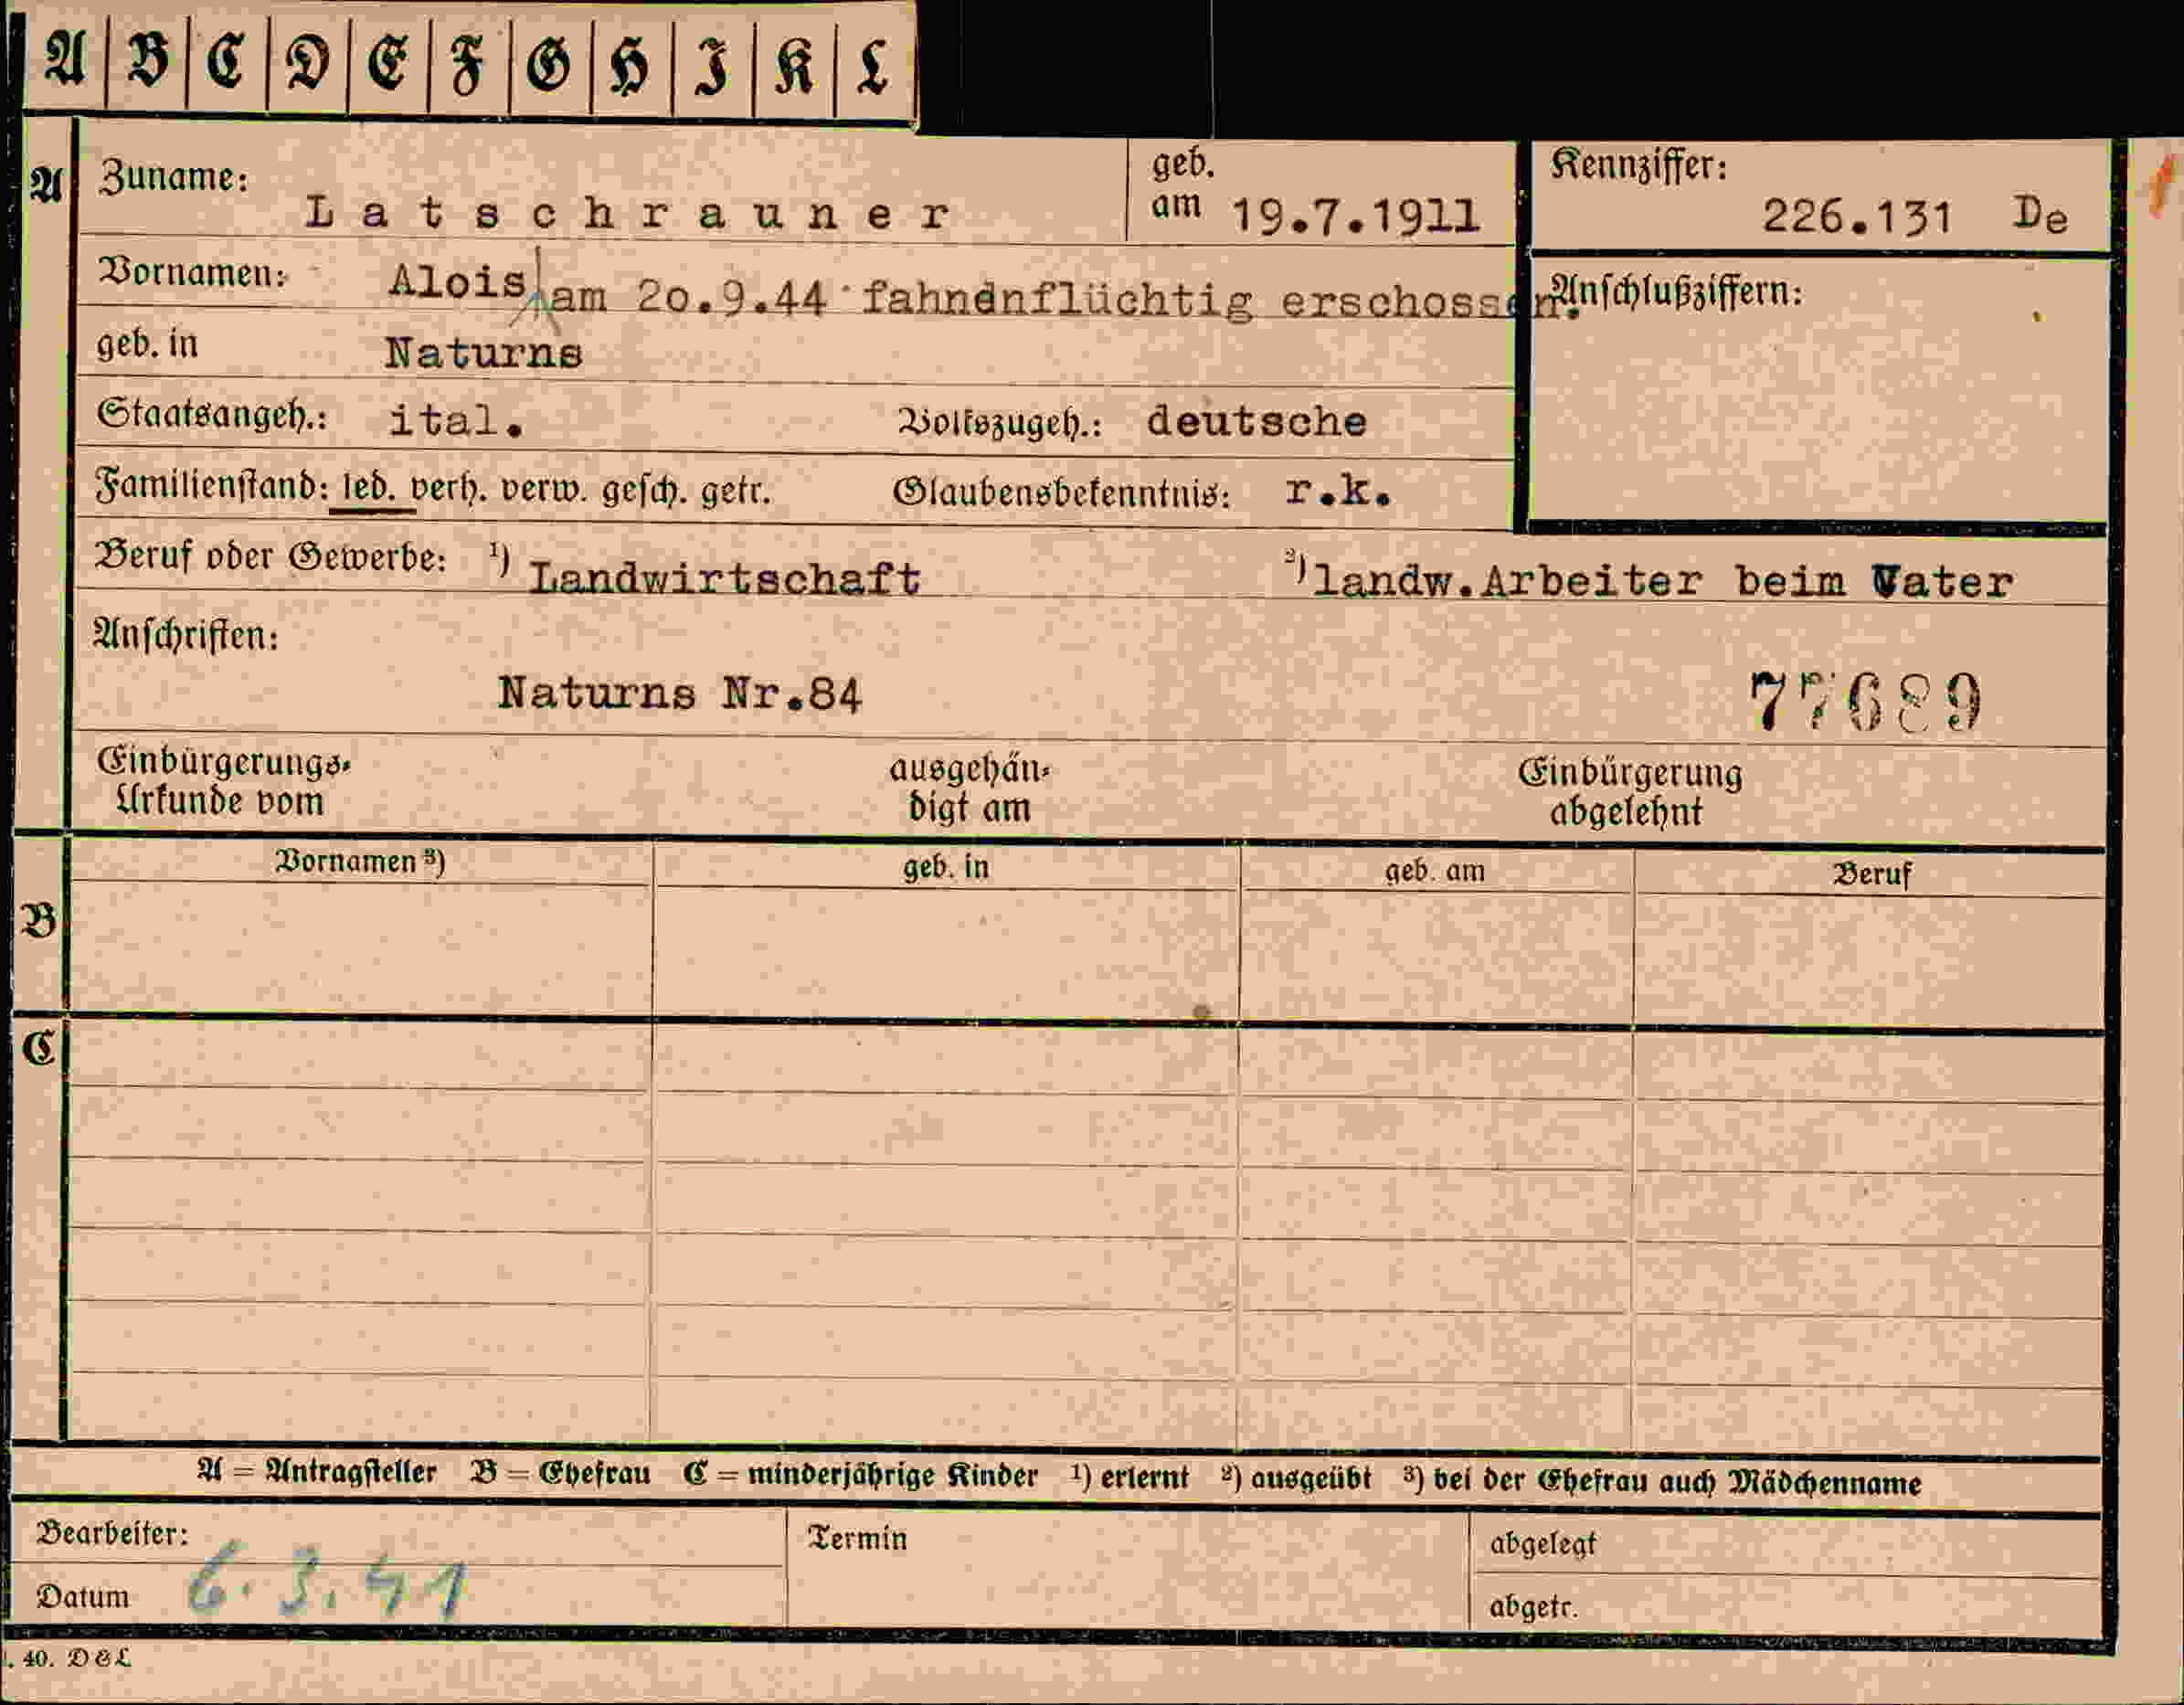 A B C D E F G H I K L
A Zuname: Latschrauner geb. am 19.7.1911 Kennziffer: 226.131 De
Vornamen: Alois am 20.9.44 fahnenflüchtig erschossen. Anschlußziffern:
geb. in Naturns
Staatsangeh.: ital. Volkszugeh.: deutsche
Familienstand: led. verh. verw. gesch. getr. Glaubensbekenntnis: r.k.
Beruf oder Gewerbe: 1) Landwirtschaft 2) landw.Arbeiter beim Vater
Anschriften:
Naturns Nr.84 77689
Einbürgerungs- ausgehän- Einbürgerung
Urkunde vom digt am abgelehnt
Vornamen 3) geb. in geb. am Beruf
B
C
A = Antragsteller B = Ehefrau C = minderjährige Kinder 1) erlernt 2) ausgeübt 3) bei der Ehefrau auch Mädchenname
Bearbeiter: Termin abgelegt
Datum 6.3.41 abgetr.
. 40. D & L